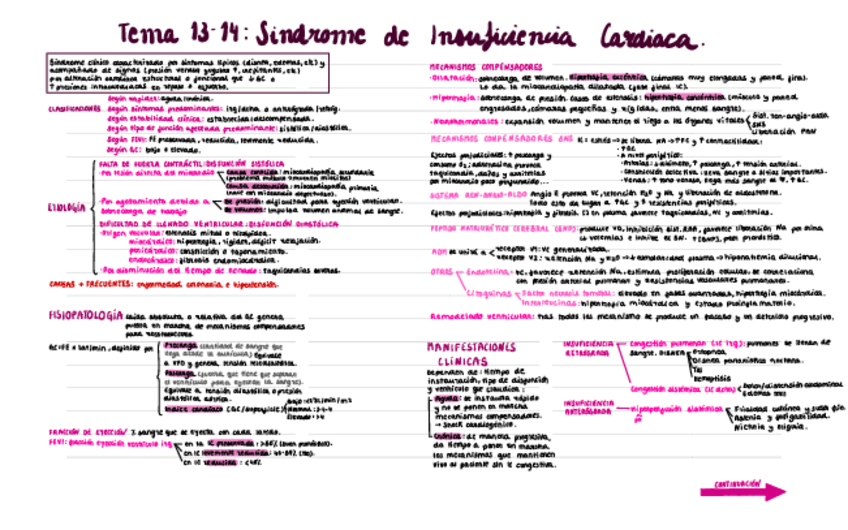 Tema 13-14: Síndrome de Insuficiencia Cardiaca.
Síndrome clínico caracterizado por síntomas típicos (disnea, edemas, etc) y
acompañado de signos (presión venosa yugular ↑, crepitantes, etc)
por alteración cardiaca estructural o funcional que ↓ GC o
↑ presiones intracardiacas en reposo o esfuerzo.
CLASIFICACIONES
Según rapidez: aguda/crónica.
Según síntomas predominantes: izq/dcha o anterógrada/retróg.
Según estabilidad clínica: estable/descompensada.
Según tipo de función afectada predominante: sistólica/diastólica.
Según FEVI: FE preservada, reducida, levemente reducida.
Según GC: bajo o elevado.
ETIOLOGÍA
FALTA DE FUERZA CONTRÁCTIL: DISFUNCIÓN SISTÓLICA
- Por lesión directa del miocardio
miocardiopatía secundaria
miocardiopatía primaria
- Por agotamiento debido a
sobrecarga de trabajo
De presión: dificultad para eyección ventricular.
De volumen: impulsa volumen anormal de sangre.
DIFICULTAD DE LLENADO VENTRICULAR: DISFUNCIÓN DIASTÓLICA
- Origen valvular: estenosis mitral o tricúspidea.
miocárdico: hipertrofia, rigidez, déficit relajación.
pericárdico: constricción o taponamiento.
endomiocárdico: fibrosis endomiocárdica.
- Por disminución del tiempo de llenado: taquicardias severas.
CAUSAS + FRECUENTES: enfermedad coronaria e hipertensión.
FISIOPATOLOGÍA caída absoluta o relativa del GC genera
puesta en marcha de mecanismos compensadores
GC=FE x lat/min, depende de
Precarga (cantidad de sangre que
llega
equivale
a VFD y genera tensión telediastólica.
Postcarga (fuerza que tiene que superar
el ventrículo para eyectar la sangre).
Equivale a tensión diastólica o presión
diastólica aórtica.
Índice cardiaco (GC/superficie)
FRACCIÓN DE EYECCIÓN % sangre que se eyecta con cada latido.
FEVI: fracción eyección ventrículo izq
en la IC preservada: >50% (buen pronóstico).
en IC levemente reducida: 40-49%
en IC reducida: <40%.
MECANISMOS COMPENSADORES
- Dilatación: sobrecarga de volumen. Hipertrofia excéntrica (cámaras muy alargadas y pared fina).
Lo da la miocardiopatía dilatada (fase final IC).
- Hipertrofia: sobrecarga de presión casos de estenosis: hipertrofia concéntrica (músculo y pared
engrosadas, cámaras pequeñas y rígidas, entra menos sangre).
- Neurohormonales: expansión volumen y mantener el riego a los órganos vitales
Sist. ren-angio-aldo
SNS
Liberación PAN
MECANISMOS COMPENSADORES SNS IC = estrés → se libera NA → ↑FC y ↑ contractilidad:
- ↑GC
- A nivel periférico:
Efectos perjudiciales: ↑ postcarga y
consumo O2; adrenalina provoca
taquicardia, daños y arritmias
- Arterias: ↓ diámetro, ↑ postcarga, ↑ tensión arterial.
- Constricción selectiva: lleva sangre a sitios importantes.
- Venas: ↑ tono venoso, llega más sangre al
SISTEMA REN-ANGIO-ALDO Angio II produce VC, retención H2O y Na y liberación de aldosterona.
Todo esto da lugar a ↑GC y ↑ resistencias periféricas.
Efectos perjudiciales: hipertrofia y fibrosis.
PÉPTIDO NATRIURÉTICO CEREBRAL (BNP): produce VD, inhibición sist. RAA, favorece liberación Na por orina
ADH se une a
receptor V1: VC generalizada.
receptor V2: retención Na y H2O → ↓ osmolaridad plasma → hiponatremia dilucional.
OTROS
Endotelina: VC, favorece retención Na, estimula proliferación celular, se correlaciona
con presión arterial pulmonar y resistencias vasculares pulmonares.
Citoquinas
Factor necrosis tumoral: elevado en fases avanzadas, hipertrofia miocárdica.
Interleucinas: hipertrofia miocárdica y estado proinflamatorio.
Remodelado ventricular: tras todos los mecanismo se produce un fracaso y un deterioro progresivo.
MANIFESTACIONES
CLÍNICAS
Dependen de: tiempo de
instauración, tipo de disfunción
y ventrículo que claudica:
Aguda: se instaura rápido
y no se ponen en marcha
mecanismos compensadores.
→ Shock cardiogénico.
Crónica: de manera progresiva,
da tiempo a poner en marcha
los mecanismos que mantienen
vivo al paciente sin IC congestiva.
INSUFICIENCIA
RETRÓGRADA
Congestión pulmonar (IC izq): pulmones se llenan de
sangre. DISNEA
Ortopnea
Disnea paroxística nocturna.
Tos
Hemoptisis
Congestión sistémica (IC dcha)
dolor/distensión abdominal
Edemas
INSUFICIENCIA
ANTERÓGRADA
Hipoperfusión sistémica
Frialdad cutánea y sudor frío
Astenia y fatigabilidad.
Nicturia y oliguria.
CONTINUACIÓN